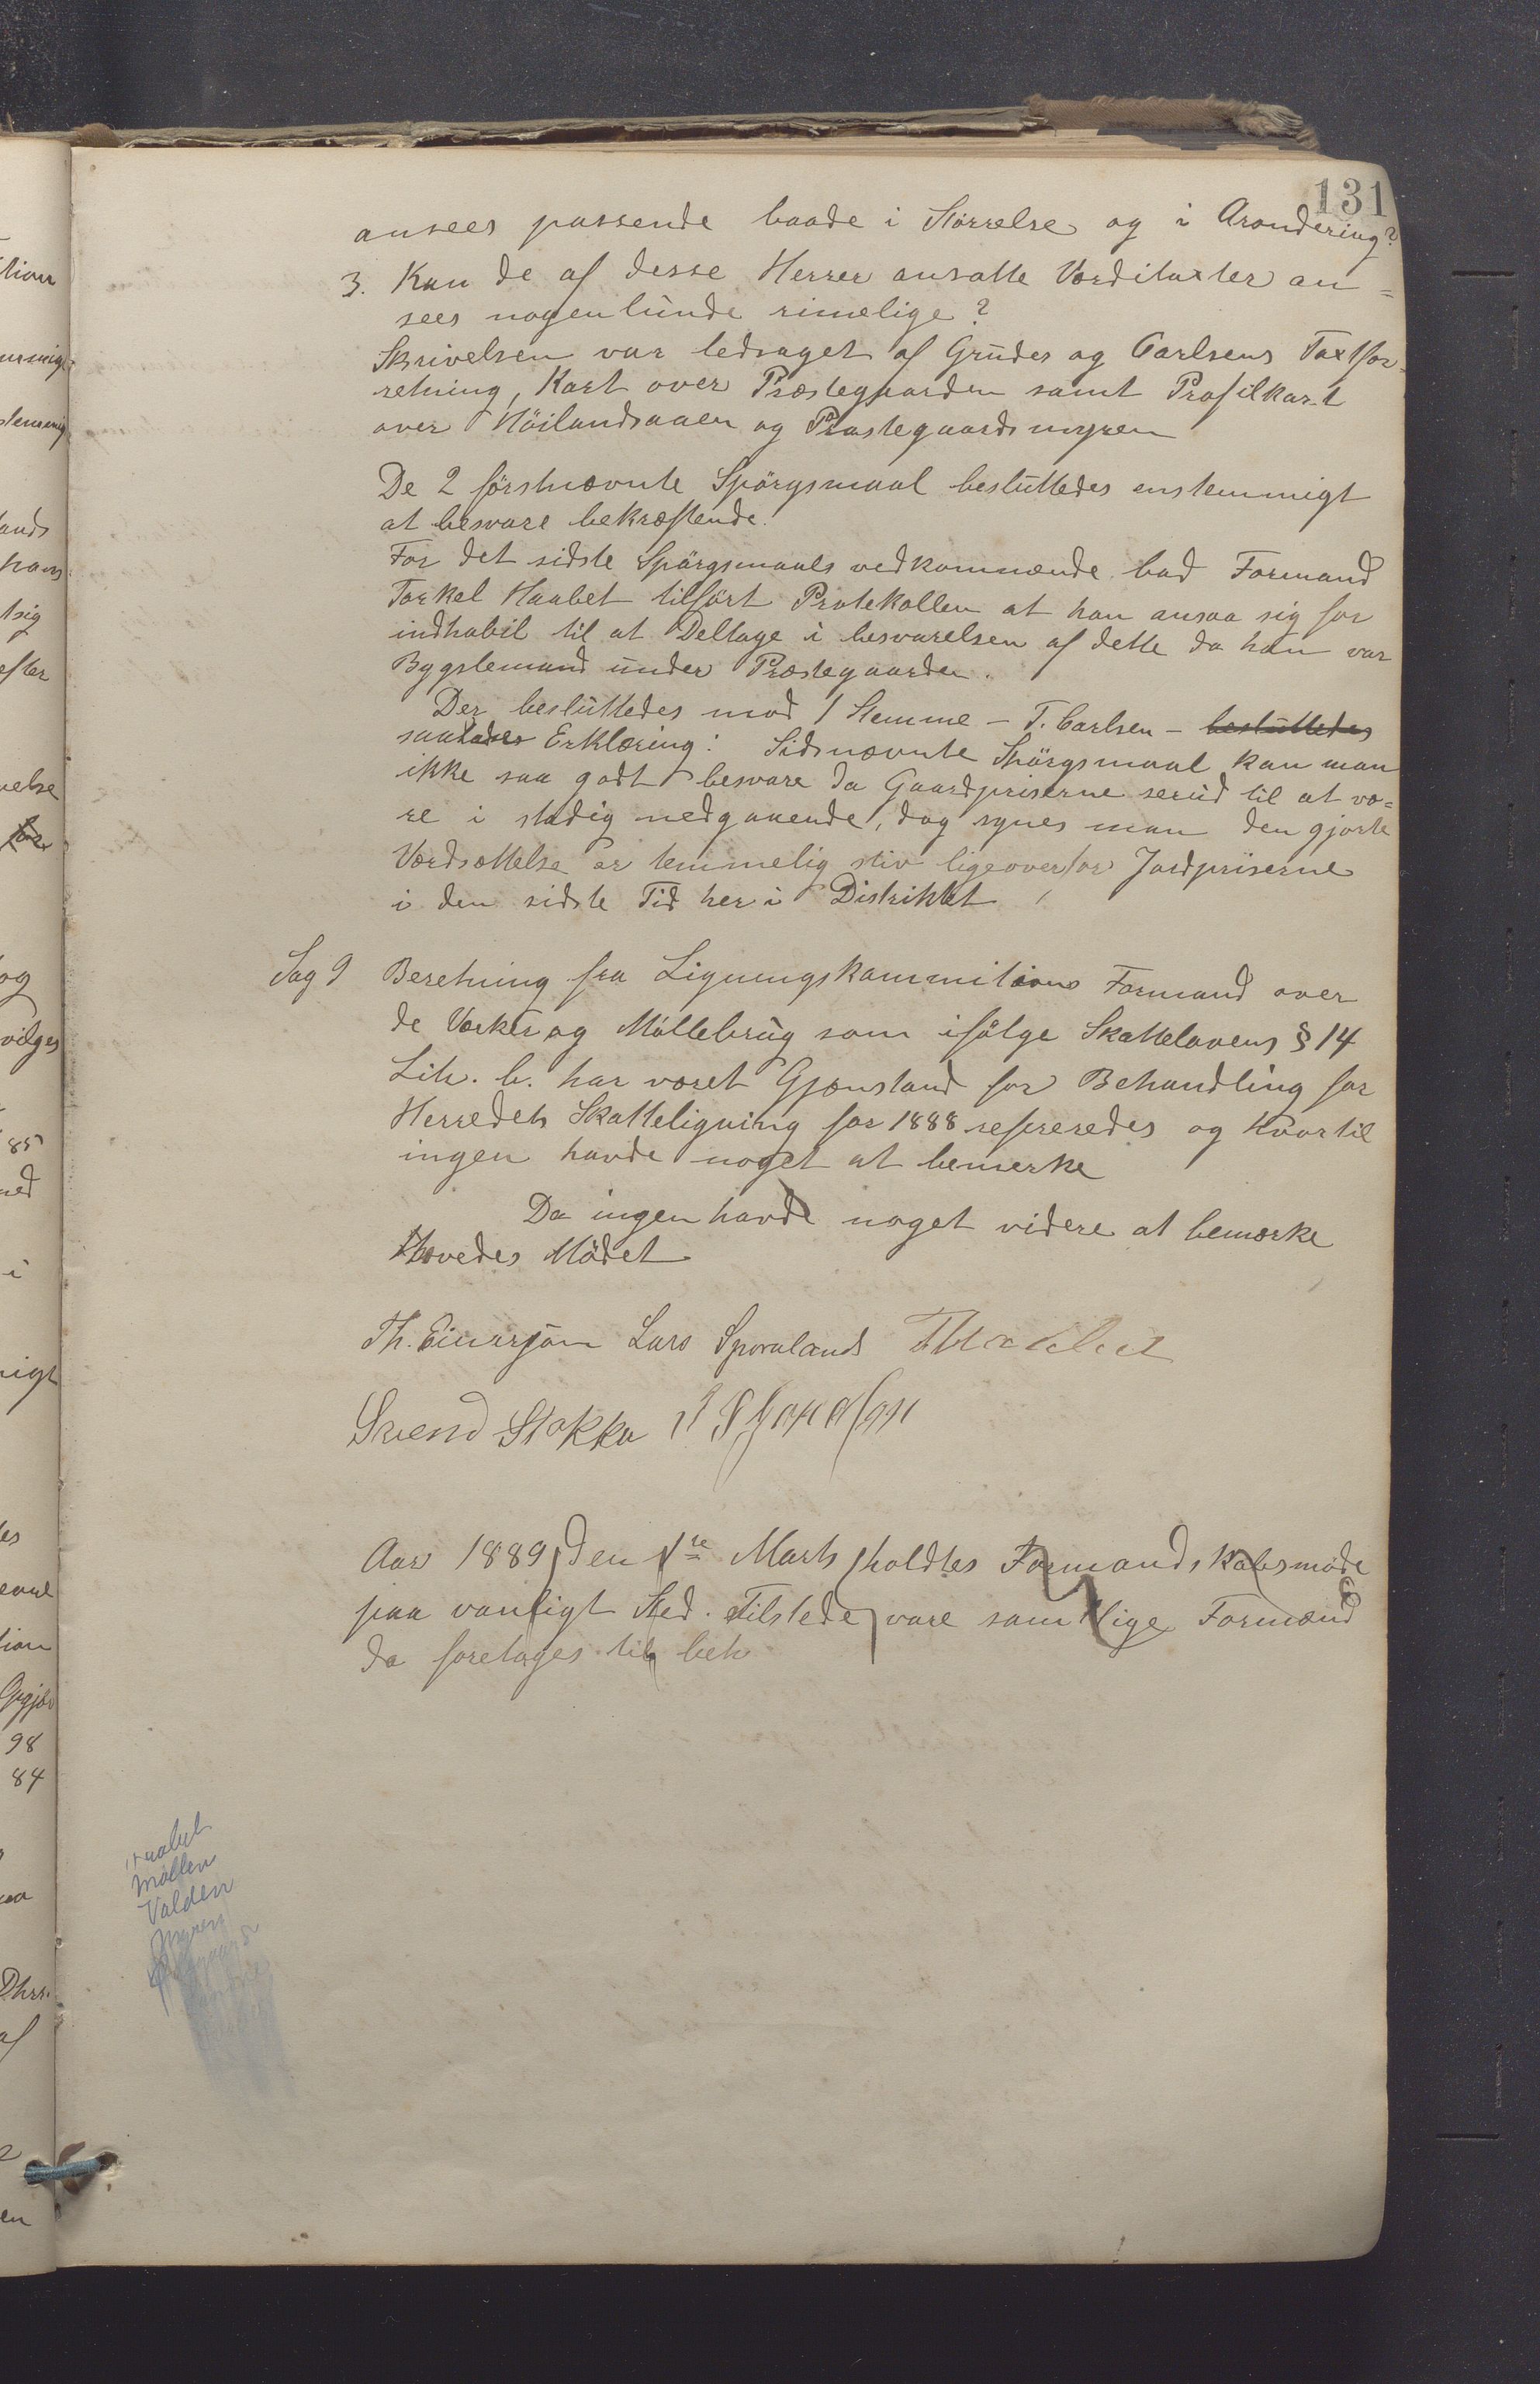 131
ansees passende baade i Störrelse og i Arondering?
3. Kan de af desse Herrer ansatte Værditaxter an=
sees nogenlunde rimelige?
Skrivelsen var ledsaget af Grudes og Carlsens Taxtfor=
retning, Kart over Præstegaarden samt Profilkart
over Höilandsaaen og Præstegaardsmyren
De 2 förstnævnte Spörgsmaal besluttedes enstemmigt
at besvare bekræftende.
For det sidste Spörgsmaals vedkommende bad Formand
Torkel Haabet tilfört Protekollen at han ansaa sig for
indhabil til at Deltage i besvarelsen af dette da han var
Bygslemand under Præstegaarden.
Der besluttedes mod 1 Stemme – T. Carlsen – besluttedes
saadan Erklæring: Sidsnævnte Spörgsmaal kan man
ikke saa godt besvare da Gaardpriserne serud til at væ=
re i stadig nedgaaende, dog synes man den gjorte
Værdsættelse er temmelig stiv ligeoverfor Jordpriserne
i den sidste Tid her i Distriktet
Sag 9 Beretning fra Ligningskommitions Formand over
de Værker og Möllebrug som ifölge Skattelovens § 14
Litr. b. har været Gjenstand for Behandling for
Herredets Skatteligning for 1888 refereredes og hvortil
ingen havde noget at bemerke
Da ingen havde noget videre at bemærke
Hævedes Mödet
Th. Einersjön Lars Sporalands THaabet
Svend Stokka
Aar 1889 den 1ste Marts holdtes Formandskabsmöde
paa vanligt Sted. Tilstede vare samtlige Formænd
da foretoges til beh
Haabet
Möllen
Valden
Myren